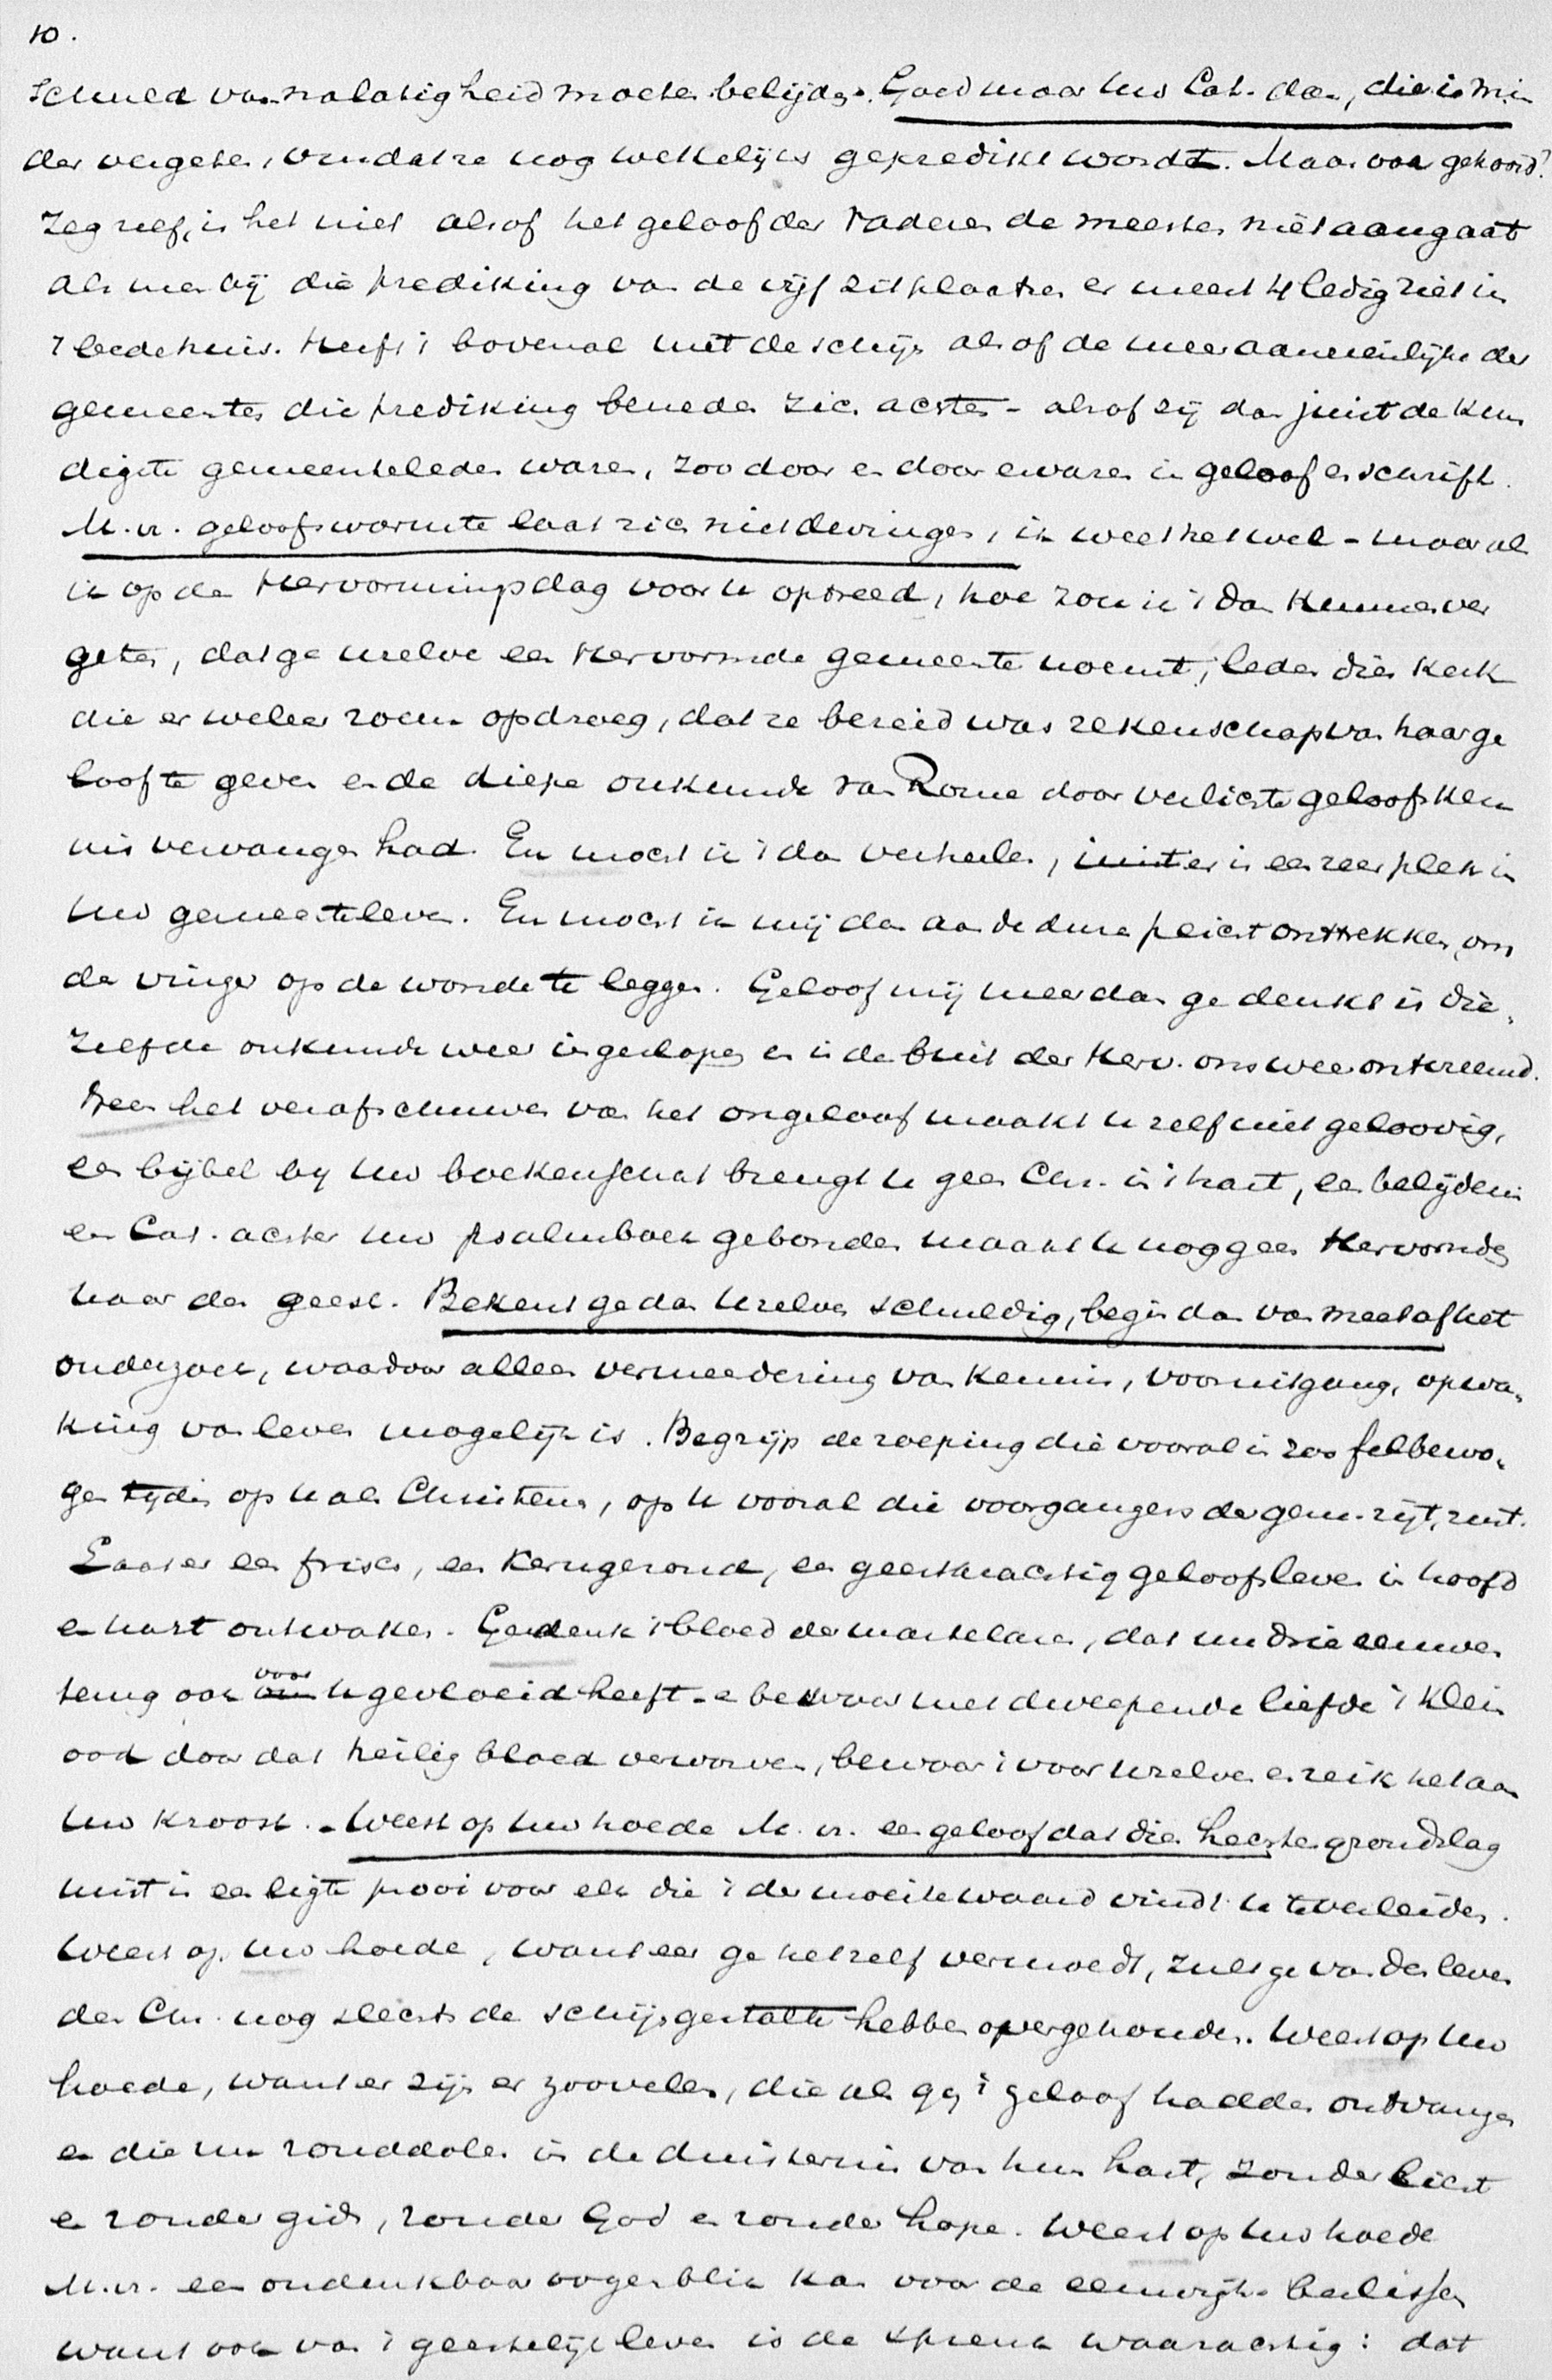 10.
schuld van nalatigheid moeten belijden. Goed maar Uw Cat. dan, die is min
der vergeten, omdat ze nog wekelijks gepredikt wordt. Maar ook gehoord?
Zeg zelf, is het niet alsof het geloof der vaderen de meesten niet aangaat
als men bij die prediking van de vijf zitplaatsen er meest 4 ledig ziet in
't bedehuis. Heeft 't bovenal niet de schijn alsof de meer aanzienlijken der
gemeenten die prediking beneden zich achten - alsof zij dan juist de kun
digste gemeenteleden waren, zoo door en door ervaren in geloof en schrift.
M.v. geloofswarmte laat zich niet dwingen, ik weet het wel - maar als
ik op den Hervormingsdag voor U optreed, hoe zou ik 't dan kunnen ver
geten, dat ge Uzelve een Hervormde gemeente noemt, leden dier kerk
die er weleer roem op droeg, dat ze bereid was rekenschap van haar ge
loof te geven en de diepe onkunde van Rome door verlichte geloofsken
nis vervangen had. En mocht ik 't dan verhelen, juist er is een zeer plek in
Uw gemeenteleven. En mocht ik mij dan aan de dure pligt onttrekken, om
de vinger op de wonde te leggen. Geloof mij meer dan ge denkt is die-
zelfde onkunde weer ingeslopen en is de buit der Herv. ons weer ontvreemd.
Neen het verafschuwen van het ongeloof maakt U zelf niet geloovig,
een bijbel bij Uw boekenschat brengt U geen Chr. in 't hart, een belijdenis
en Cat. achter Uw psalmboek gebonden maakt U nog geen Hervormden
naar den geest. Bekent ge dan Uzelven schuldig, begin dan van meet af het
onderzoek, waardoor alleen vermeerdering van kennis, vooruitgang, opwa-
king van leven mogelijk is. Begrijp de roeping die vooral in zoo felbewo-
gen tijden op U als Christenen, op U vooral die voorgangers der gem. zijt, rust.
Laat er een frisch, een kerngezond, een geestkrachtig geloofsleven in hoofd
en hart ontwaken. Gedenk 't bloed der martelaren, dat nu drie eeuwen
terug ook voor U gevloeid heeft - en bewaar met dweepende liefde 't klein
ood door dat heilig bloed verworven, bewaar 't voor Uzelven en reik het aan
Uw kroost. - Weest op Uw hoede M.v. een geloof dat dien hechten grondslag
mist is een ligte prooi voor elk die 't der moeite waard vindt U te verleiden.
Weest op Uw hoede, want eer ge het zelf vermoedt, zult ge van den leven
den Chr. nog slechts de schijngestalte hebben overgehouden. Weest op Uw
hoede, want er zijn er zoovelen, die als gij 't geloof hadden ontvangen
en die nu ronddolen in de duisternis van hun hart, zonder licht
en zonder gids, zonder God en zonder hope. Weest op Uw hoede
M.v. een ondenkbaar oogenblik kan voor de eeuwigh. beslissen
want ook van 't geestelijk leven is de spreuk waarachtig: dat